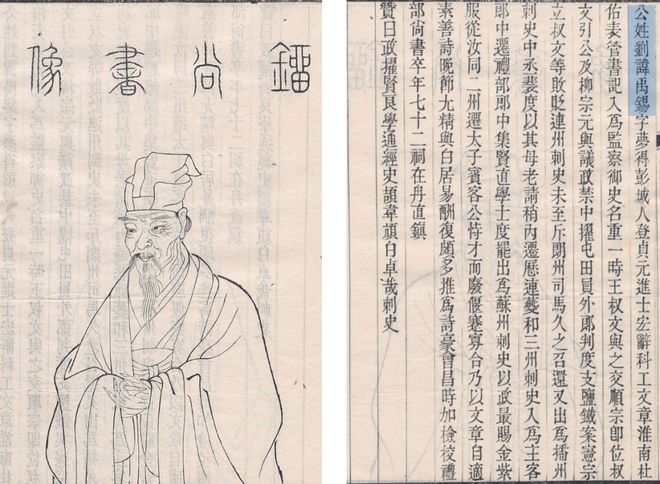 鎦尚書像
公姓劉諱禹錫字夢得彭城人登貞元進士宏辭科工文章淮南杜
佑表管書記入爲監察御史名重一時王叔文與之交順宗卽位叔
文引公及柳宗元與議政禁中擢屯田員外郞判度支鹽鐵案憲宗
立叔文等敗貶連州刺史未至斥朗州司馬久之召還又出爲播州
刺史中丞裴度以其母老請稍內遷歷連夔和三州刺史入爲主客
郞中遷禮部郞中集賢直學士度罷出爲蘇州刺史以政最賜金紫
服從汝同二州遷太子賓客公恃才而廢偃蹇寡合乃以文章自適
素善詩晚節尤精與白居易酬復頗多推爲詩豪會昌時加檢校禮
部尚書卒年七十二祠在丹直鎮
贊曰政擢賢良學通經史頡韋頏白卓哉刺史